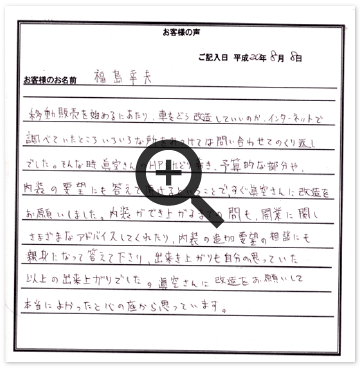 お客様の声
ご記入日 平成20年8月8日
お客様のお名前 福島幸夫
移動販売を始めるにあたり、車をどう改造していいのか、インターネットで
調べていたところいろいろな所をあたっては問い合わせてのくり返し
でした。そんな時眞空さんの、予算的な部分や、
内装の要望にも答えてことで、すぐ眞空さんに改造を
お願いしました。内装ができ上がるまでの間も、開業に関し
さまざまなアドバイスしてくれたり、内装の追加要望の相談にも
親身になって答えて下さり、出来上がりも自分の思っていた
以上の出来上がりでした。眞空さんに改造をお願いして
本当によかったと心の底から思っています。